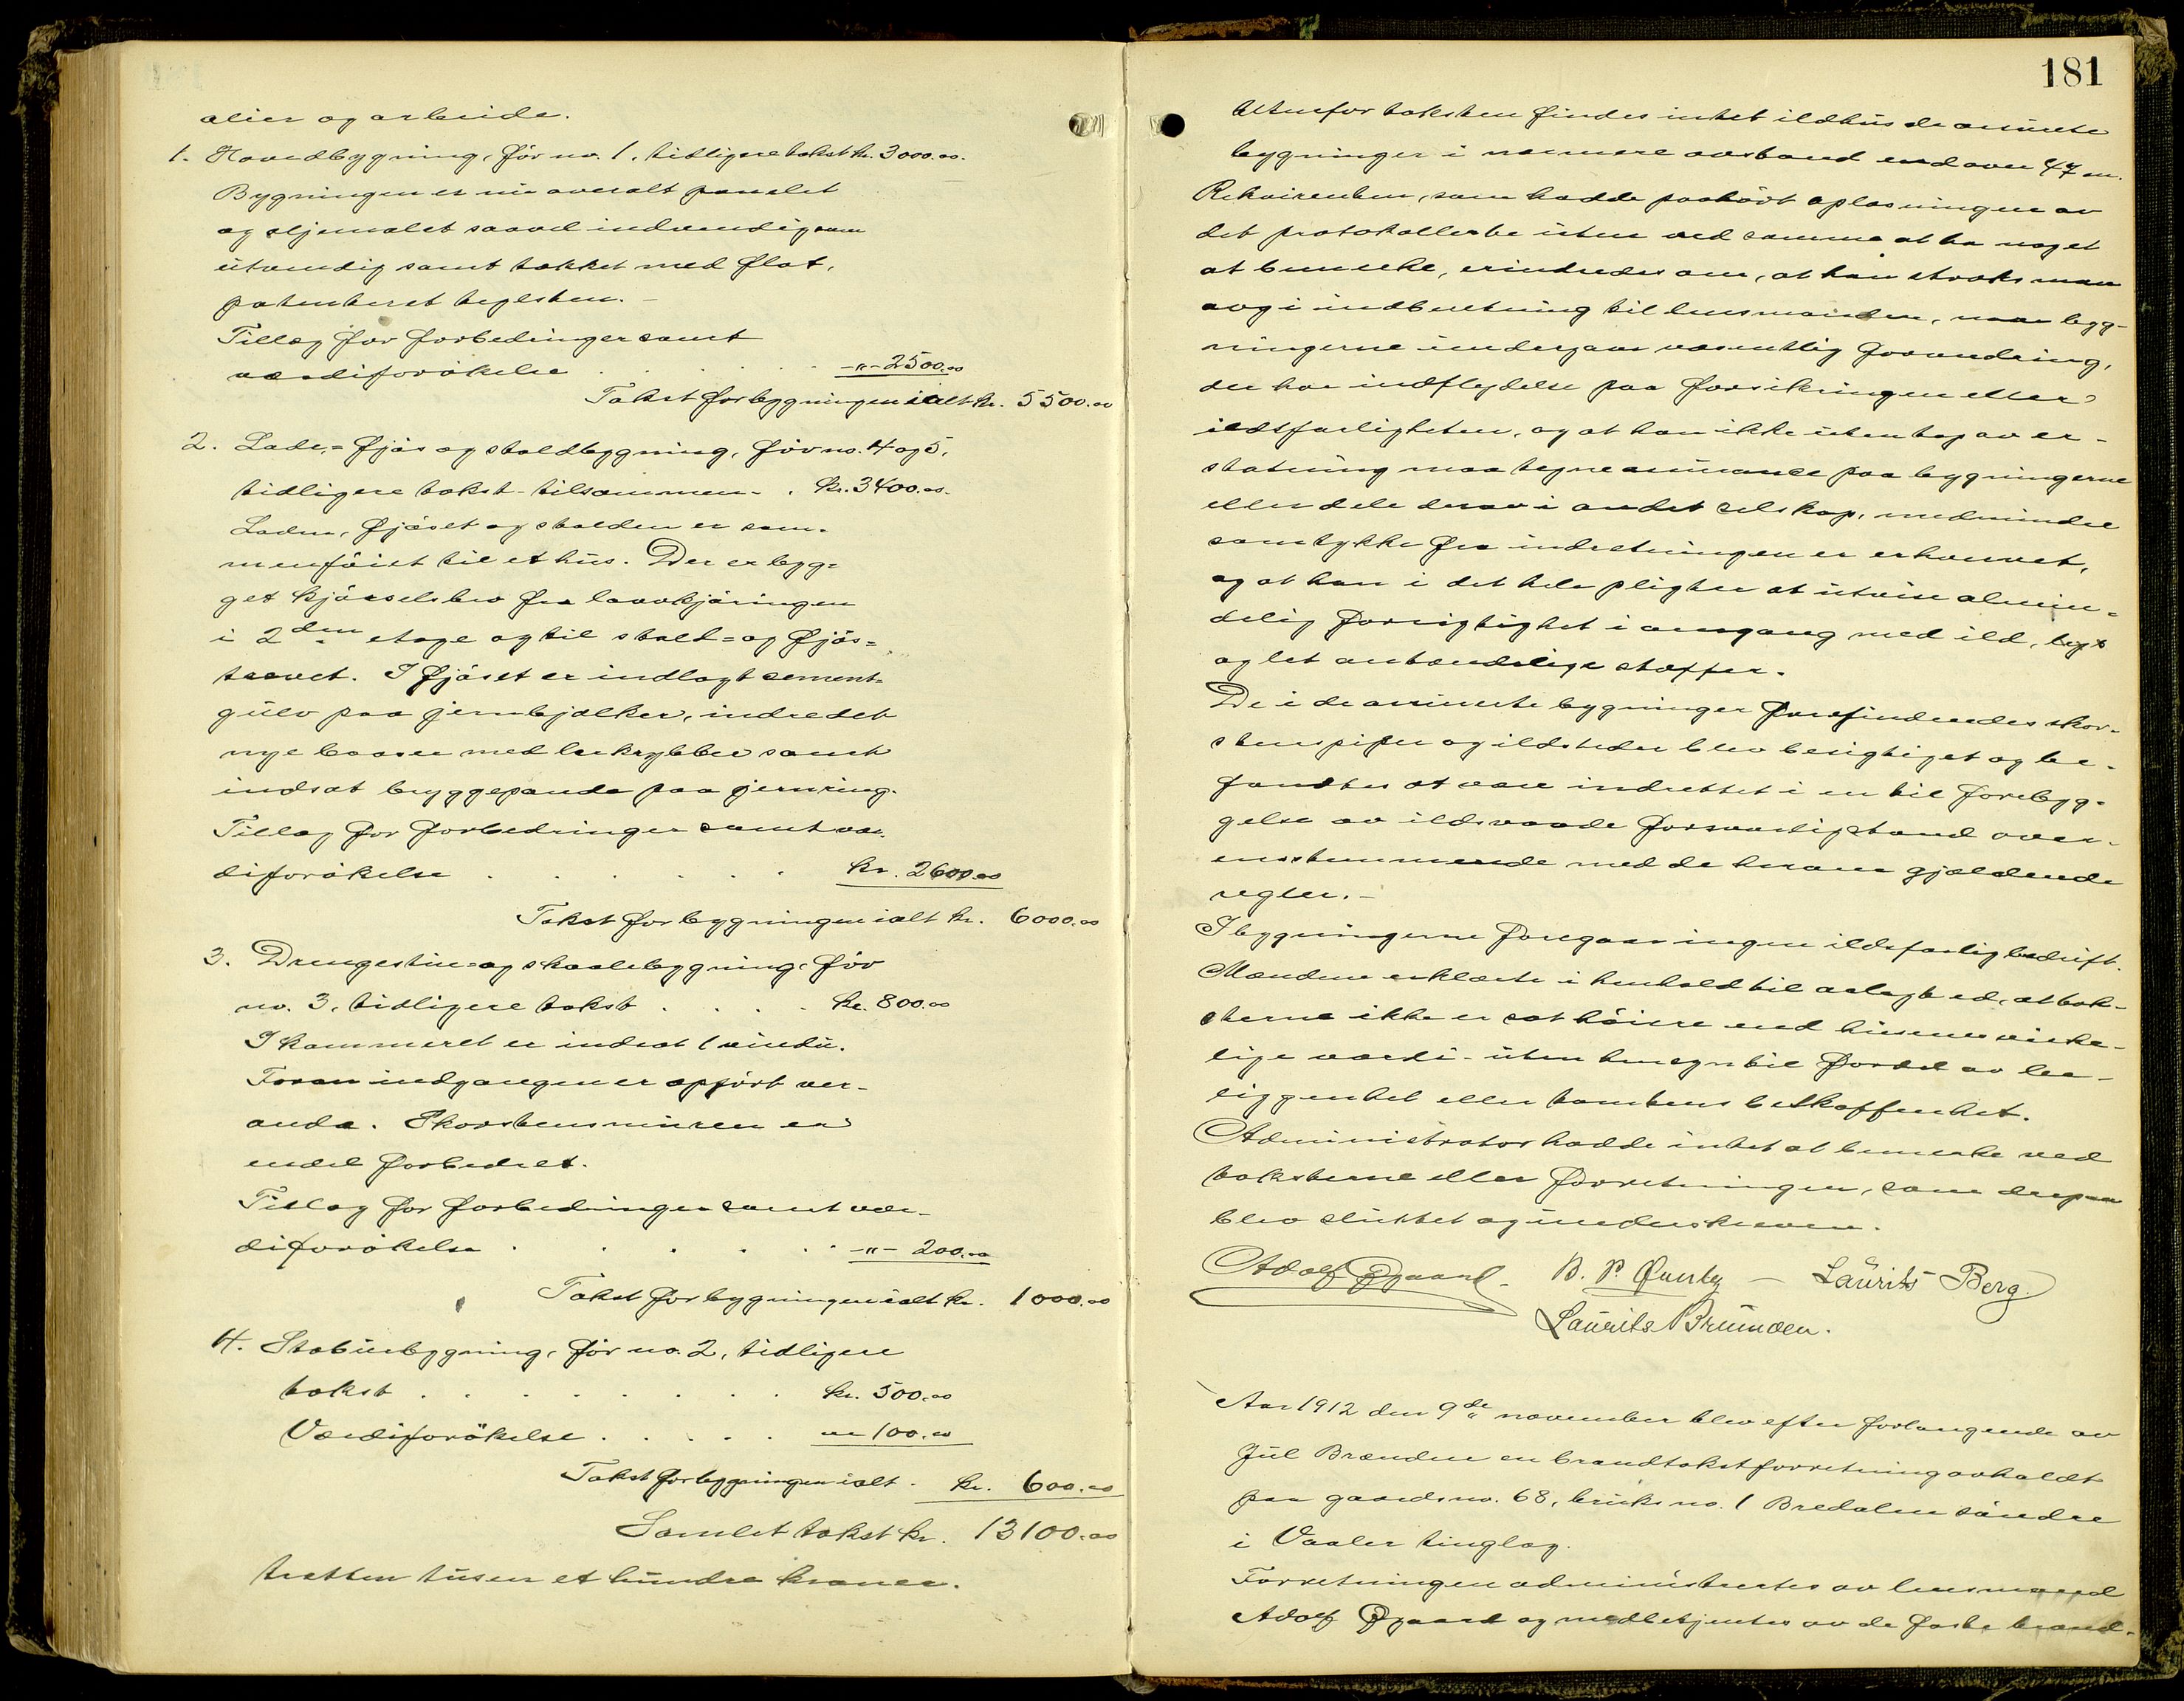 alier og arbeide.
1. Hovedbygning, før no. 1, tidligere takst kr. 3000.00.
Bygningen er nu overalt panelet
og oljemalet saavel indvendig som
utvendig samt tækket med flat,
patenteret teglsten. –
Tillæg for forbedringer samt
værdiforøkelse . . . . . -"- 2500.00
Takst for bygningen ialt kr. 5500.00
2. Lade,= fjøs og staldbygning, før no. 4 og 5,
tidligere takst tilsammen . kr. 3400.00.
Laden, fjøset og stalden er sam-
menføiet til et hus. Der er byg-
get kjørselsbro fra laavekjøringen
i 2den etage og til stald= og fjøs=
. I fjøset er indlagt sement-
gulv paa jernbjælker, indredet
nye baaser med krybber samt
indsat bryggepande paa jernring.
Tillæg for forbedringer samt vær-
diforøkelse . . . . . . kr. 2600.00
Takst for bygningen ialt kr. 6000.00
3. Drengestue= og skaalebygning, før
no. 3, tidligere takst . . . . kr. 800.00
I kammeret er indsat 1 vindu.
Foran indgangen er opført ver-
anda. Skorstensmuren er
endel forbedret.
Tillæg for forbedringer samt vær-
diforøkelse . . . . . . -"- 200.00
Takst for bygningen ialt kr. 1000.00
4. Stabursbygning, før no. 2, tidligere
takst . . . . . . . . kr. 500.00
Værdiforøkelse . . . . . -"- 100.00
Takst for bygningen ialt . kr. 600.00
Samlet takst kr. 13100.00
tretten tusen et hundre kroner.
181
Utenfor taksten findes intet ildhus de assurerte
bygninger i nærmere avstand end over 47 m.
Rekvirenten, som hadde paahørt oplæsningen av
det protokollerte uten ved samme at ha noget
at bemerke, erindredes om, at han straks maa
avgi indberetning til lensmanden, naar byg-
ningerne undergaar væsentlig forandring,
der har indflydelse paa forsikringen eller
ildsfarligheten, og at han ikke uten tap av er-
statning maa tegne assurance paa bygningerne
eller dele derav i andet selskap, medmindre
samtykke fra indretningen er erhvervet,
og at han i det hele pligter at utvise almin-
delig forsigtighet i omgang med ild, lys
og let antændelige stoffer.
De i de assurerte bygninger forefindendes skor-
stenspiper og ildsteder blev besigtiget og be-
fandtes at være indrettet i en til forebyg-
gelse av ildsvaade forsvarlig stand over-
ensstemmende med de herom gjældende
regler. –
I bygningerne foregaar ingen ildsfarlig bedrift.
Mændene erklærte i henhold til avlagt ed, at tak-
sterne ikke er sat høiere end husenes virke-
lige værdi – uten hensyn til fordel av be-
liggenhet eller tomtens beskaffenhet.
Administrator hadde intet at bemerke ved
taksterne eller forretningen, som derpaa
blev sluttet og underskreven.
Adolf Øgaard. B. P. – Laurits Berg.
Laurits Brunden.
Aar 1912 den 9de november blev efter forlangende av
Jul Brænden en brandtakstforretning avholdt
paa gaardsno. 68, bruksno. 1 Bredalen søndre
i Vaaler tinglag.
Forretningen administrertes av lensmand
Adolf Øgaard og medbetjentes av de faste brand-